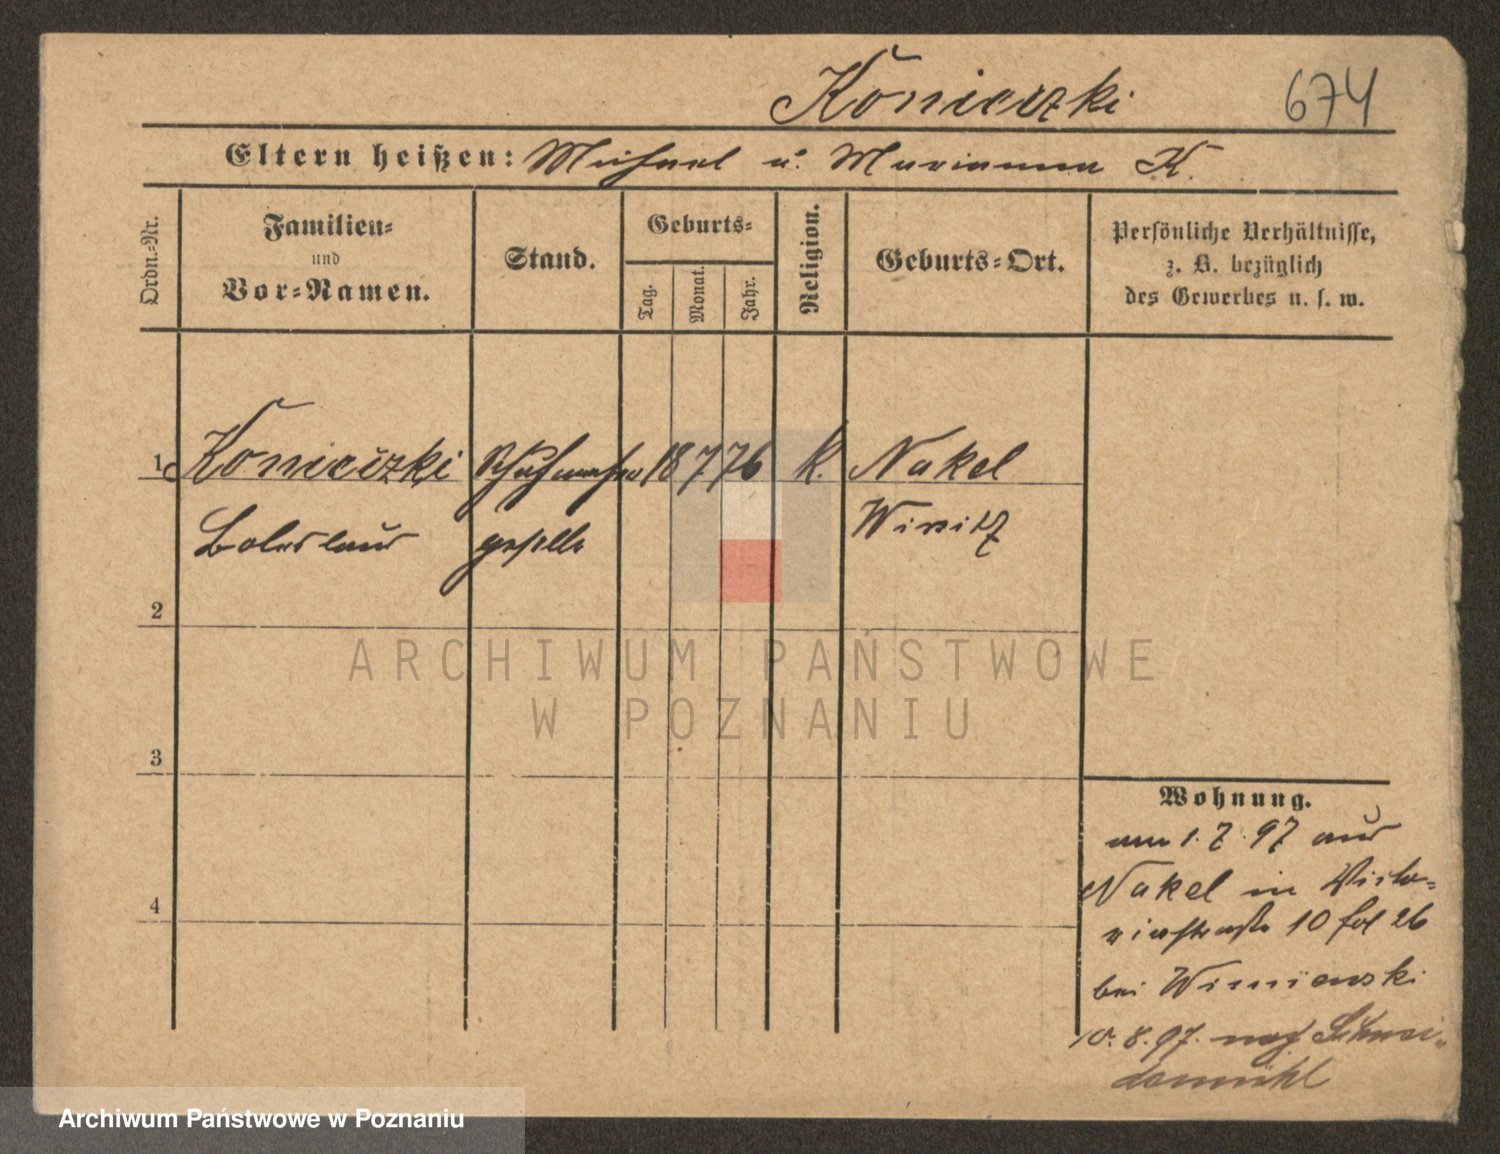 Konieczki 674
Eltern heißen: Michael u. Marianna K.
Ordn.-Nr.
Familien-
und
Vor-Namen.
Stand.
Geburts-
Tag.
Monat.
Jahr.
Religion.
Geburts-Ort.
Persönliche Verhältnisse,
z. B. bezüglich
des Gewerbes u. s. w.
1 Konieczki Schuhmacher 18 7 76 k. Nakel
Boleslaus geselle Wirsitz
2
3
4
Wohnung.
am 1.7.97 aus
Nakel in Victo-
riastraße 10 fol 26
bei
10.8.97. nach Schnei-
demühl
ARCHIWUM PAŃSTWOWE
W POZNANIU
Archiwum Państwowe w Poznaniu